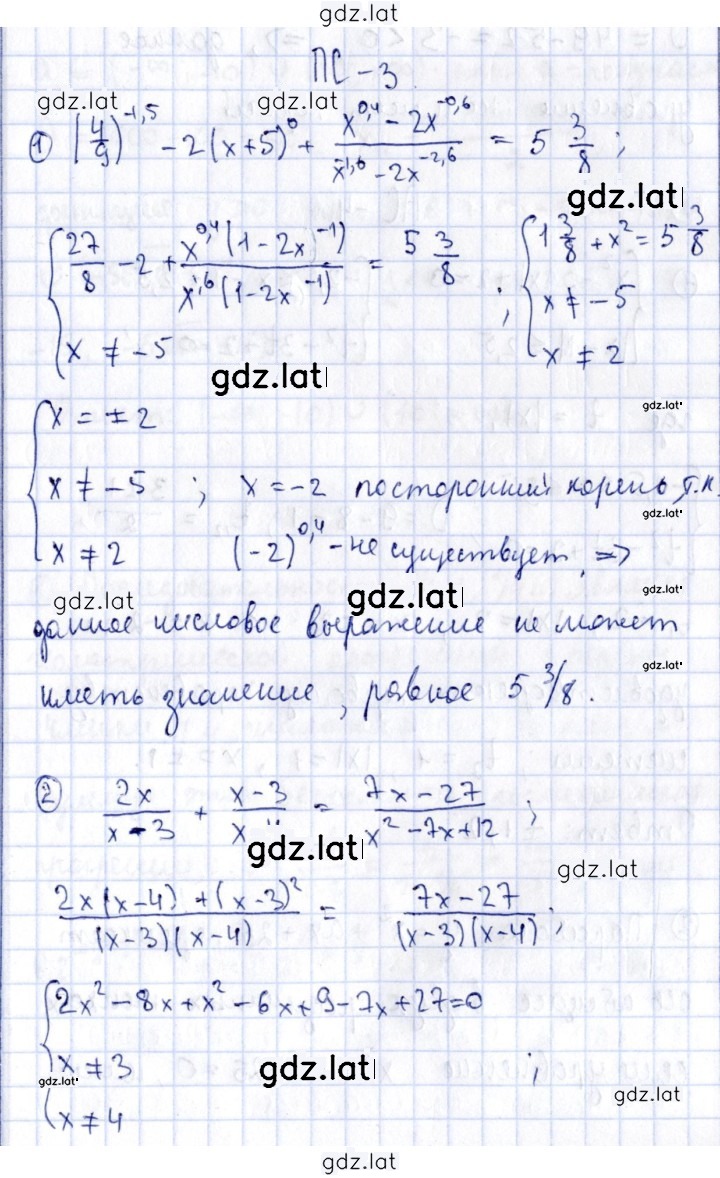 gdz.lat
ПС-3.
gdz.lat gdz.lat
① (4/9)^-1,5 - 2(x+5)^0 + (x^0,4 - 2x^-0,6)/(x^-1,6 - 2x^-2,6) = 5 3/8 ;
gdz.lat
{ 27/8 - 2 + (x^0,4(1-2x^-1))/(x^-1,6(1-2x^-1)) = 5 3/8 ; { 1 3/8 + x^2 = 5 3/8
x ≠ -5
x ≠ -5
x ≠ 2
gdz.lat
{ x = ±2
gdz.lat
x ≠ -5 ; x = -2 посторонний корень, т.к.
gdz.lat
x ≠ 2 (-2)^0,4 - не существует, =>
gdz.lat gdz.lat gdz.lat
данное числовое выражение не может
gdz.lat
иметь значение, равное 5 3/8.
② 2x/(x-3) + (x-3)/(x-4) = (7x-27)/(x^2-7x+12) ;
gdz.lat
gdz.lat
(2x(x-4) + (x-3)^2)/((x-3)(x-4)) = (7x-27)/((x-3)(x-4)) ;
{ 2x^2 - 8x + x^2 - 6x + 9 - 7x + 27 = 0
x ≠ 3 ;
gdz.lat gdz.lat
gdz.lat
x ≠ 4
gdz.lat